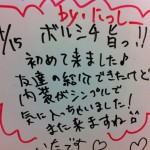 by.たっしー
4/15 ボルシチ旨っ!!
初めて来ました♪
友達の紹介できたけど
内装がシンプルで
気に入っちゃいました!
また来ますね